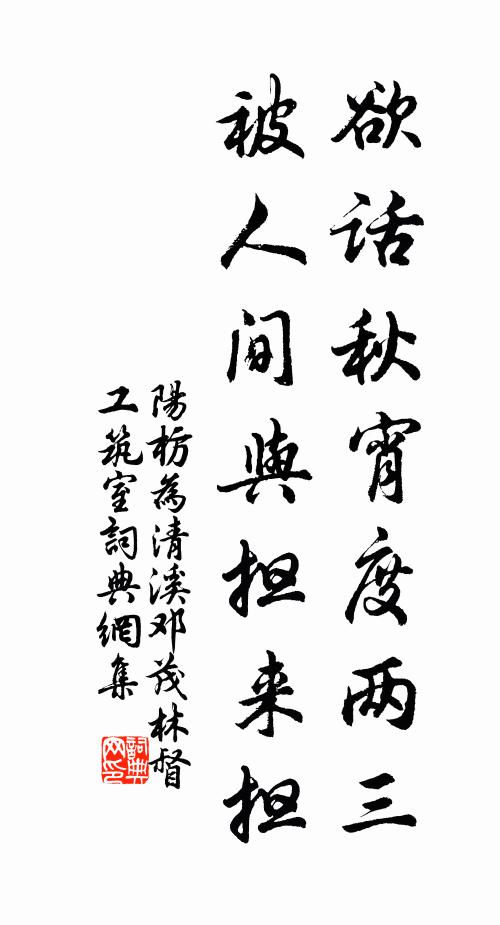 欲话秋宵度两三
被人间与担来担
陽枋為清溪邓茂林督
工筑室詞典網集
詞典網印